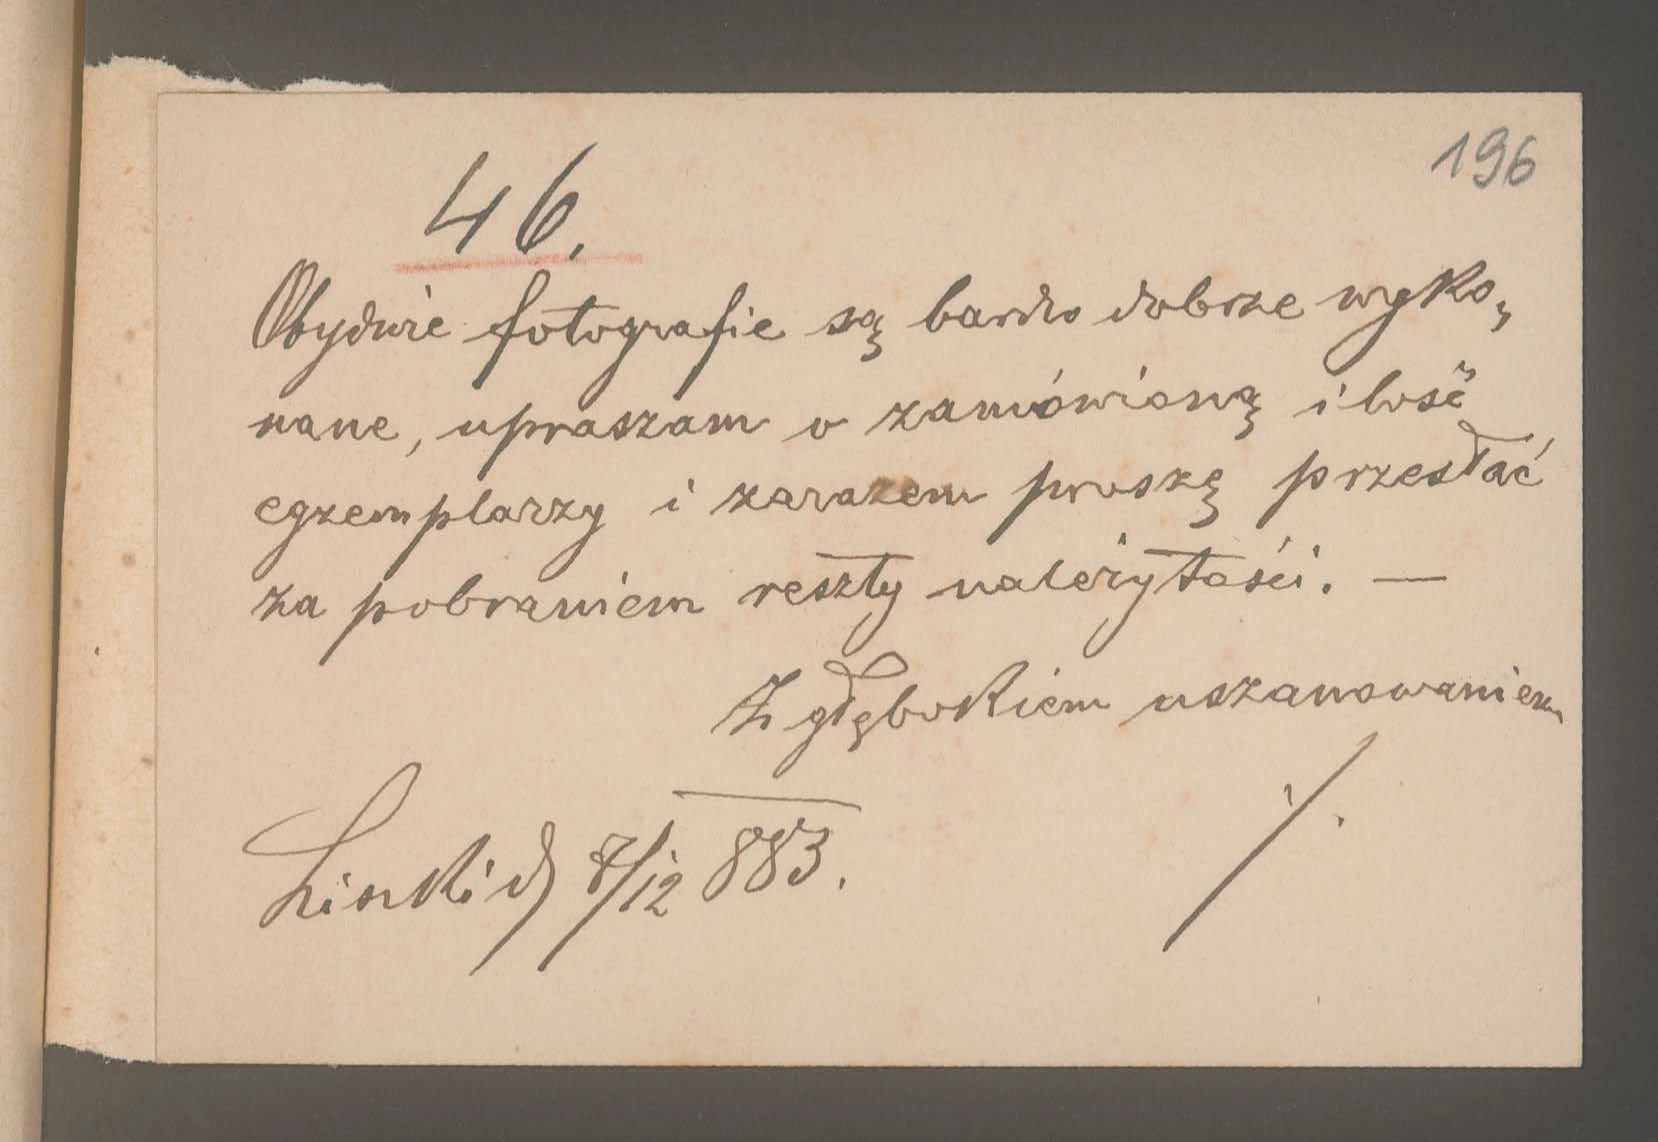 196
46.
Obydwie fotografie są bardzo dobrze wyko,
nane, upraszam o zamówioną ilość
egzemplarzy i zarazem proszę przesłać
za pobraniem reszty należytości. —
Z głębokiem uszanowaniem
Liszki d 8/12 883.